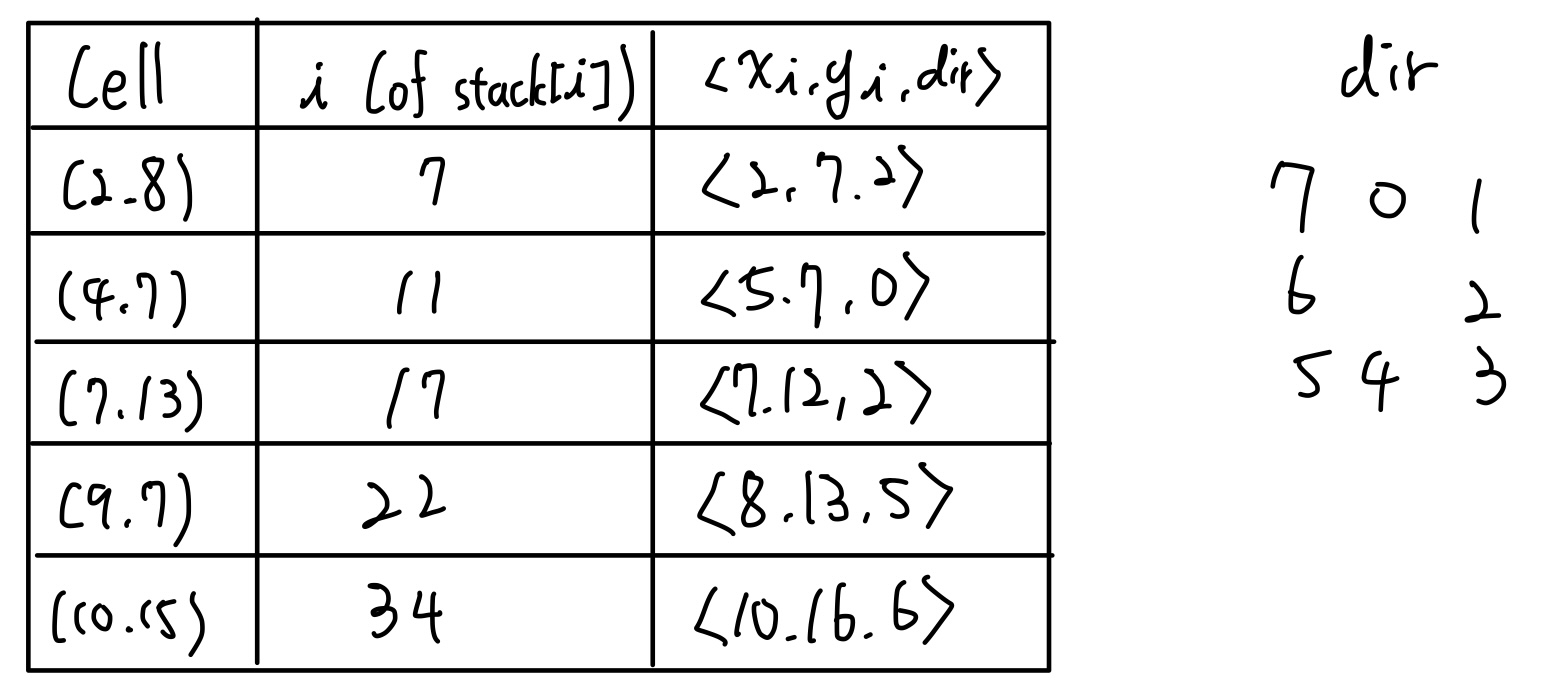 Cell i (of stack[i]) <xi,yi,dir>
(2.8) 7 <2,7.2>
(4.7) 11 <5.7,0>
(7.13) 17 <7.12,2>
(9.7) 22 <8.13.5>
(10.15) 34 <10.16.6>
dir
7 0 1
6 2
5 4 3